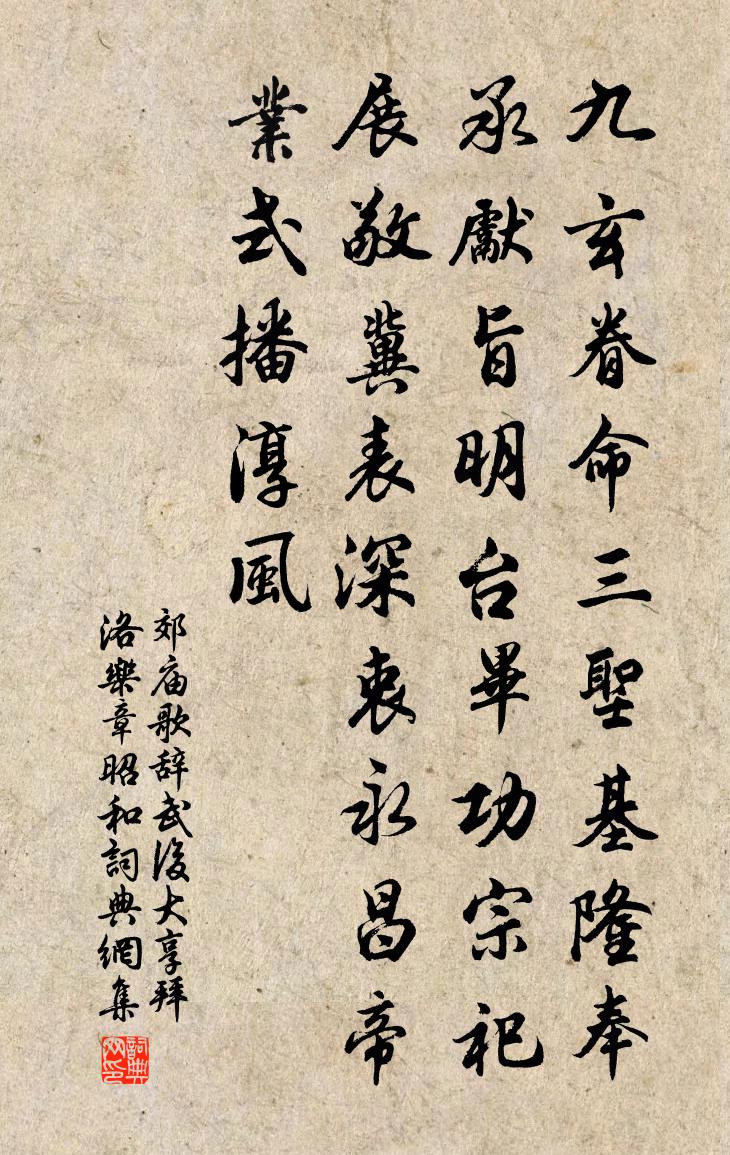 九玄眷命三聖基隆奉
承獻旨明台畢功宗祀
展敬冀表深衷永昌帝
業式播淳風
郊庙歌辞武後大享拜
洛樂章昭和詞典網集
詞典网印